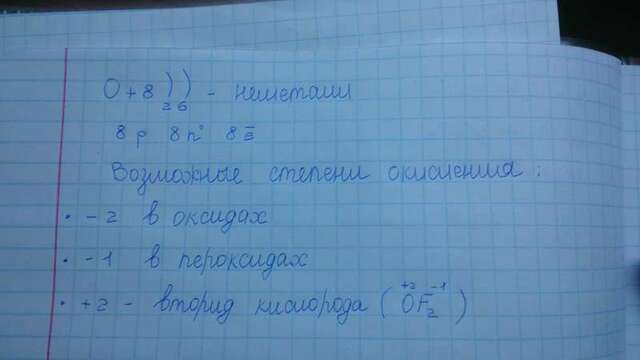 O +8 ) ) 2 6 - неметалл
8 p 8 n° 8 ē
Возможные степени окисления:
• -2 в оксидах
• -1 в пероксидах
• +2 - вторид кислорода (O⁺²F₂⁻¹)